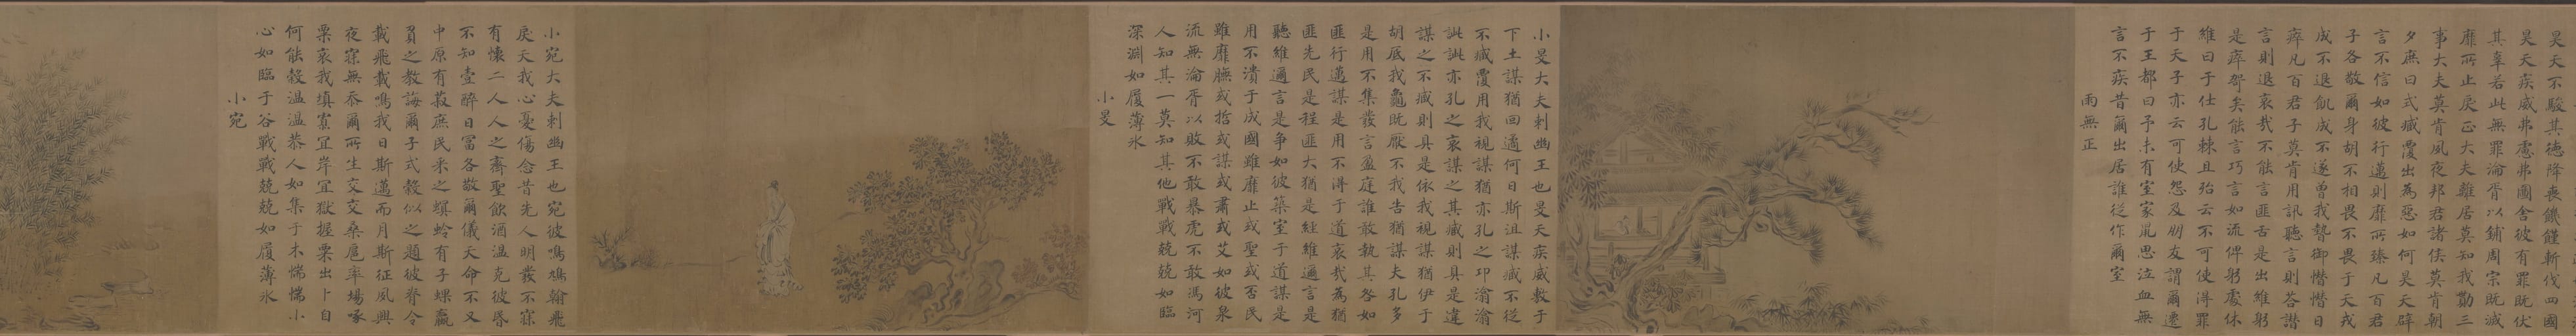 昊天不駿其德降喪饑饉斬伐四國
昊天疾威弗慮弗圖舍彼有罪既伏
其辜若此無罪淪胥以鋪周宗既滅
靡所止戾正大夫離居莫知我勩三
事大夫莫肯夙夜邦君諸侯莫肯朝
夕庶曰式臧覆出為惡如何昊天辟
言不信如彼行邁則靡所臻凡百君
子各敬爾身胡不相畏不畏于天戎
成不退飢成不遂曾我暬御憯憯日
瘁凡百君子莫肯用訊聽言則荅譖
言則退哀哉不能言匪舌是出維躬
是瘁哿矣能言巧言如流俾躬處休
維曰于仕孔棘且殆云不可使得罪
于天子亦云可使怨及朋友謂爾遷
于王都曰予未有室家鼠思泣血無
言不疾昔爾出居誰從作爾室
雨無正
小旻大夫刺幽王也旻天疾威敷于
下土謀猶回遹何日斯沮謀臧不從
不臧覆用我視謀猶亦孔之邛潝潝
訿訿亦孔之哀謀之其臧則具是違
謀之不臧則具是依我視謀猶伊于
胡厎我龜既厭不我告猶謀夫孔多
是用不集發言盈庭誰敢執其咎如
匪行邁謀是用不得于道哀哉為猶
匪先民是程匪大猶是經維邇言是
聽維邇言是爭如彼築室于道謀是
用不潰于成國雖靡止或聖或否民
雖靡膴或哲或謀或肅或艾如彼泉
流無淪胥以敗不敢暴虎不敢馮河
人知其一莫知其他戰戰兢兢如臨
深淵如履薄冰
小旻
小宛大夫刺幽王也宛彼鳴鳩翰飛
戾天我心憂傷念昔先人明發不寐
有懷二人人之齊聖飲酒溫克彼昏
不知壹醉日富各敬爾儀天命不又
中原有菽庶民采之螟蛉有子蜾蠃
負之教誨爾子式穀似之題彼脊令
載飛載鳴我日斯邁而月斯征夙興
夜寐無忝爾所生交交桑扈率場啄
粟哀我填寡宜岸宜獄握粟出卜自
何能穀溫溫恭人如集于木惴惴小
心如臨于谷戰戰兢兢如履薄冰
小宛